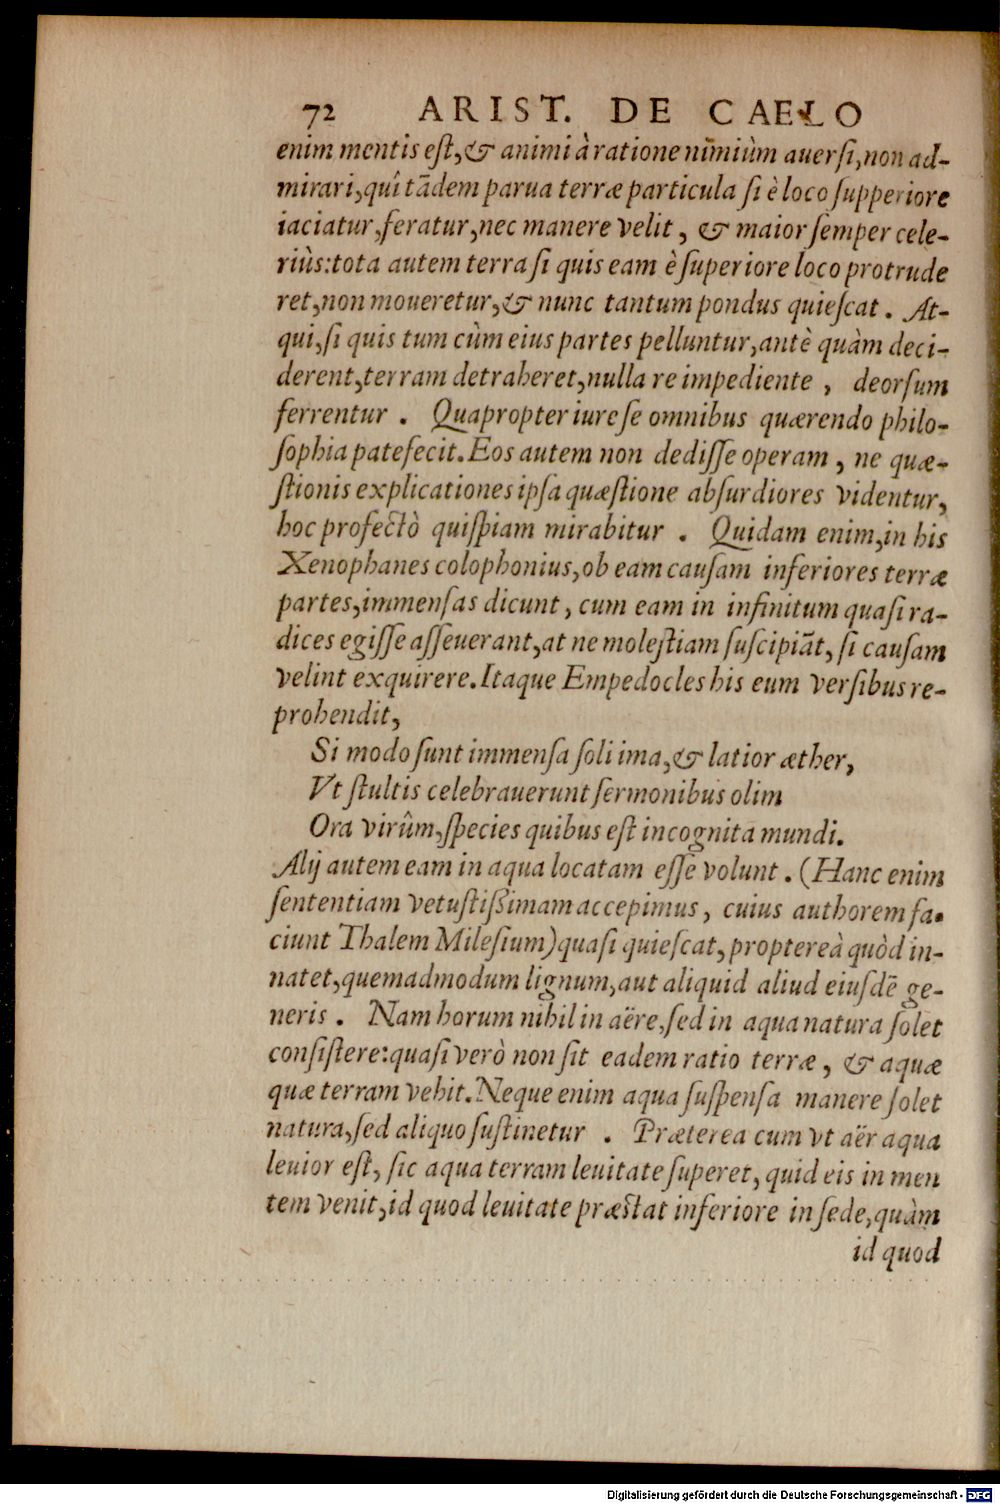 72 ARIST. DE CAELO
enim mentis eſt, & animi à ratione nīmiùm auerſi, non ad-
mirari, quî tādem parua terræ particula ſi è loco ſupperiore
iaciatur, feratur, nec manere velit, & maior ſemper cele-
riùs: tota autem terra ſi quis eam è ſuperiore loco protrude
ret, non moueretur, & nunc tantum pondus quieſcat. At-
qui, ſi quis tum cùm eius partes pelluntur, antè quàm deci-
derent, terram detraheret, nulla re impediente, deorſum
ferrentur. Quapropter iure ſe omnibus quærendo philo-
ſophia patefecit. Eos autem non dediſſe operam, ne quæ-
ſtionis explicationes ipſa quæſtione abſurdiores videntur,
hoc profectò quiſpiam mirabitur. Quidam enim, in his
Xenophanes colophonius, ob eam cauſam inferiores terræ
partes, immenſas dicunt, cum eam in infinitum quaſi ra-
dices egiſſe aſſeuerant, at ne moleſtiam ſuſcipiāt, ſi cauſam
velint exquirere. Itaque Empedocles his eum verſibus re-
prohendit,
Si modo ſunt immenſa ſoli ima, & latior æther,
Vt ſtultis celebrauerunt ſermonibus olim
Ora virûm, ſpecies quibus eſt incognita mundi.
Alij autem eam in aqua locatam eſſe volunt. (Hanc enim
ſententiam vetuſtißimam accepimus, cuius authorem fa-
ciunt Thalem Mileſium) quaſi quieſcat, proptereà quòd in-
natet, quemadmodum lignum, aut aliquid aliud eiuſdē ge-
neris. Nam horum nihil in aëre, ſed in aqua natura ſolet
conſiſtere: quaſi verò non ſit eadem ratio terræ, & aquæ
quæ terram vehit. Neque enim aqua ſuſpenſa manere ſolet
natura, ſed aliquo ſuſtinetur. Præterea cum vt aër aqua
leuior eſt, ſic aqua terram leuitate ſuperet, quid eis in men
tem venit, id quod leuitate præſtat inferiore in ſede, quàm
id quod
Digitalisierung gefördert durch die Deutsche Forschungsgemeinschaft - DFG